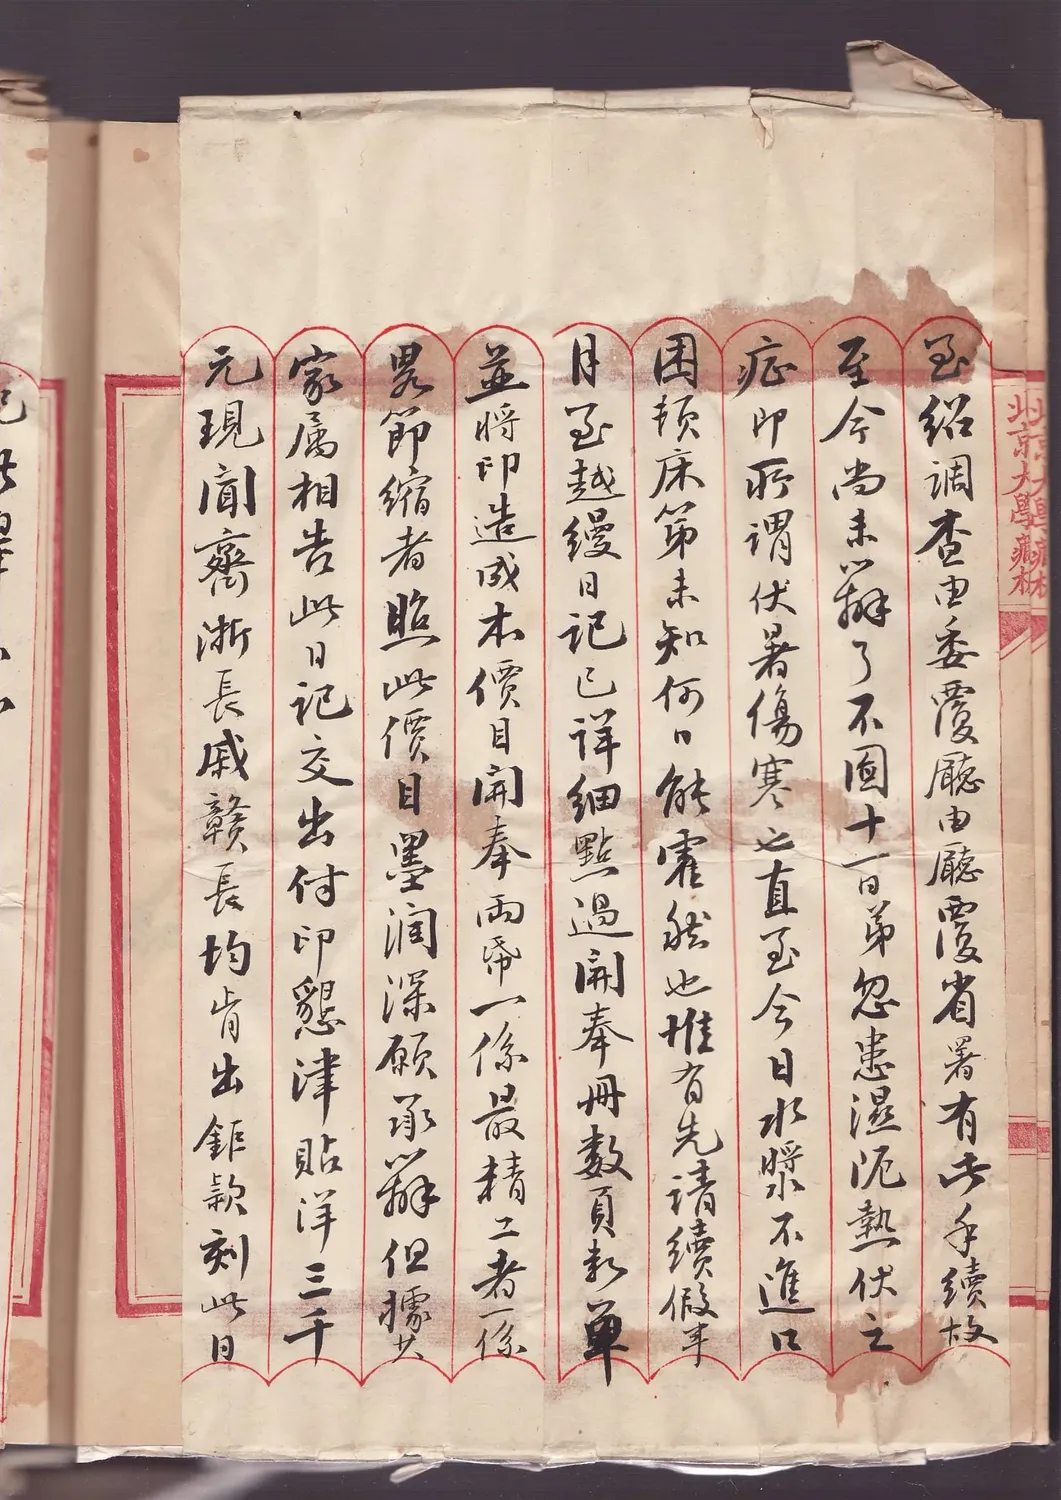 至紹調查由委覆廳由廳覆省署有此手續故
至今尚未辦了不圖十一日弟忽患濕阨熱伏之
症即所謂伏暑傷寒也直至今日水漿不進口
困頓床笫未知何日能霍然也惟有先請續假半
月至越縵日記已詳細點過開奉冊數頁數單
並將印造成本價目開奉兩帋一係最精工者一係
畧節縮者照此價目墨潤深願承辦但據其
家屬相告此日記交出付印懇津貼洋三千
元現聞齊浙長戚贛長均肯出鉅款刻此日
北京大學